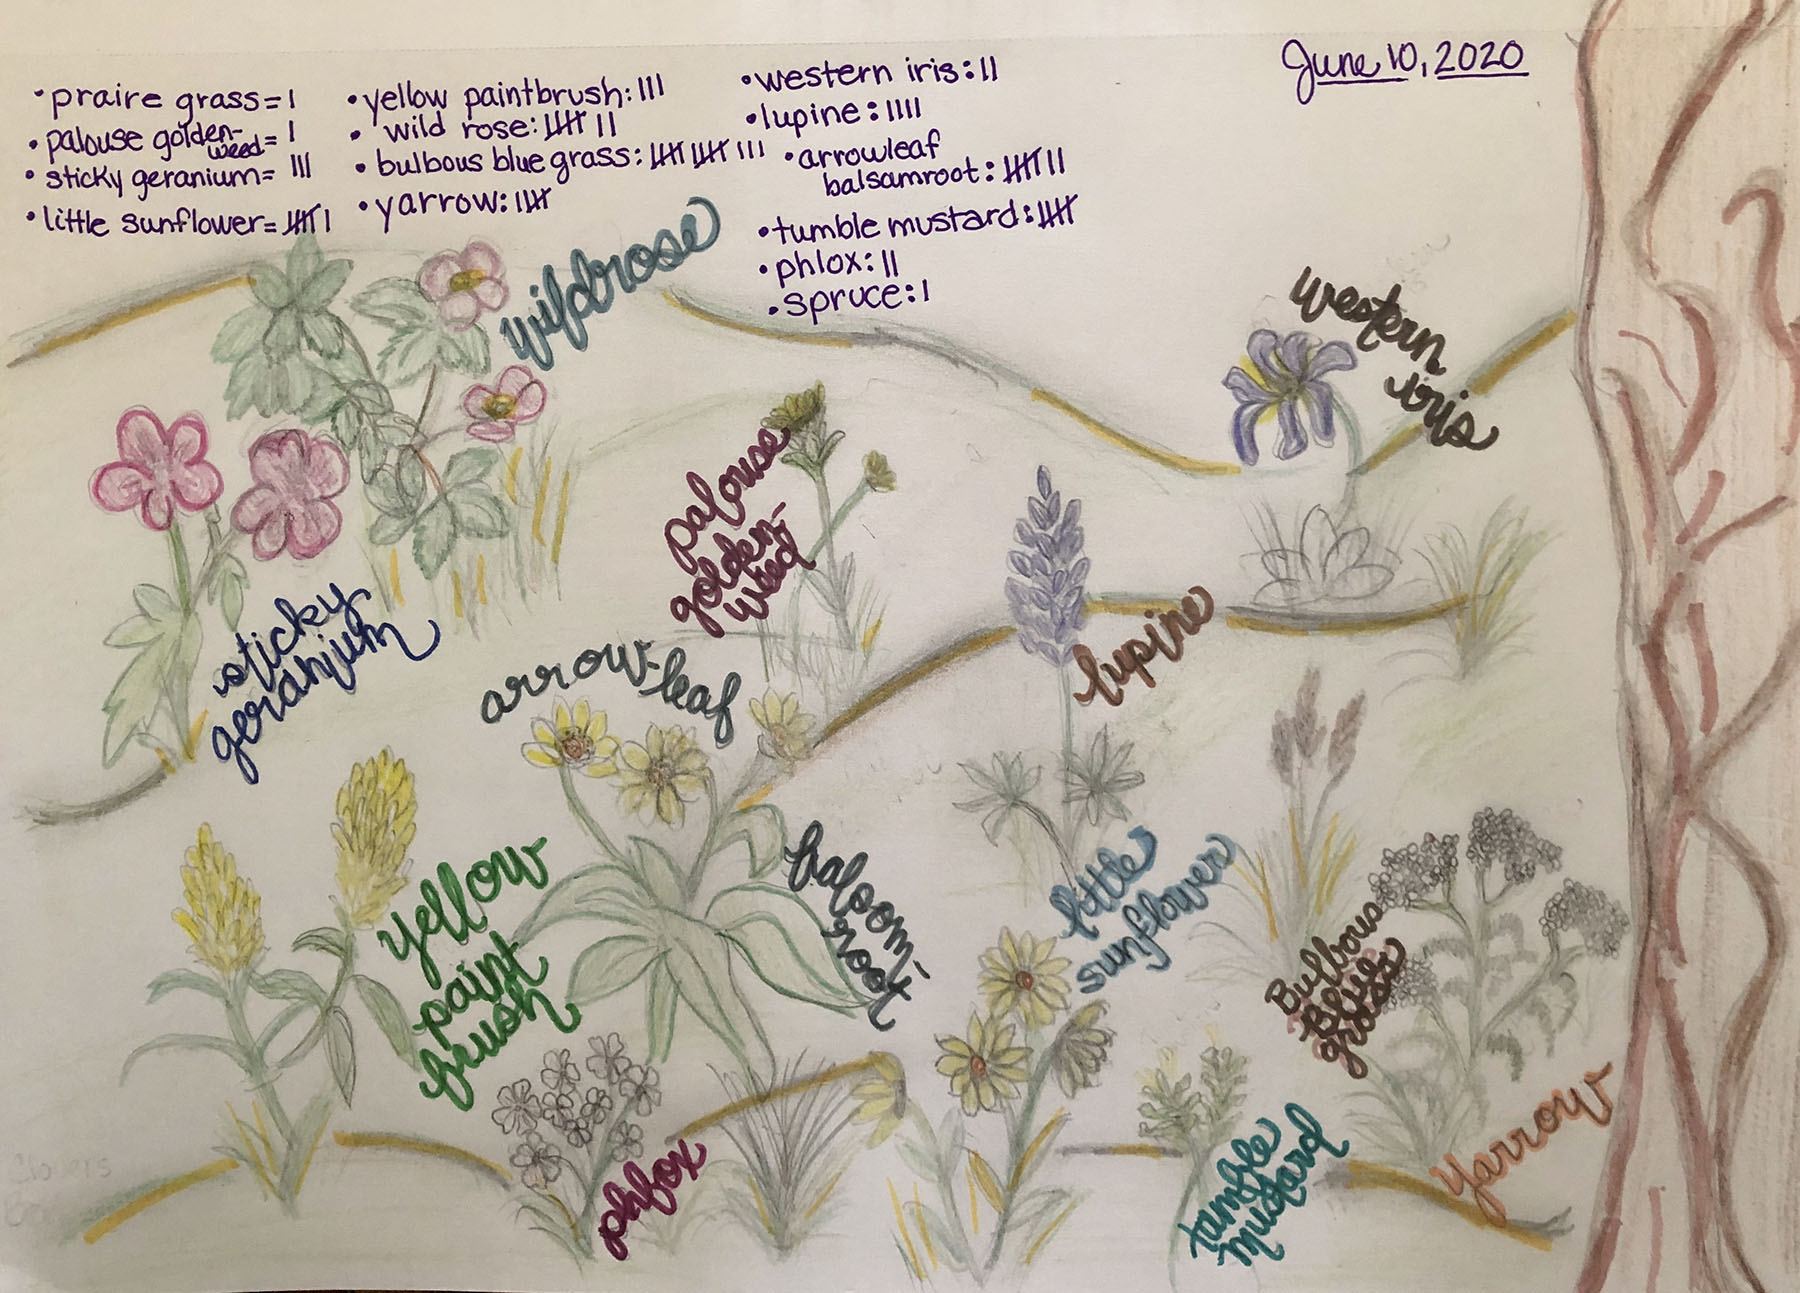 June 10, 2020
• praire grass= I
• palouse golden-
weed= I
• sticky geranium= III
• little sunflower= IIII I
• yellow paintbrush: III
• wild rose: IIII II
• bulbous blue grass: IIII IIII III
• yarrow: IIII
• western iris: II
• lupine: IIII
• arrowleaf
balsamroot: IIII II
• tumble mustard: IIII
• phlox: II
• spruce: I
wildrose
western
iris
palouse
golden-
weed
sticky
geranium
arrow leaf
lupine
yellow
paint
brush
root
little
sunflower
Bulbous
Blue
grass
phlox
tumble
mustard
Yarrow
Clovers